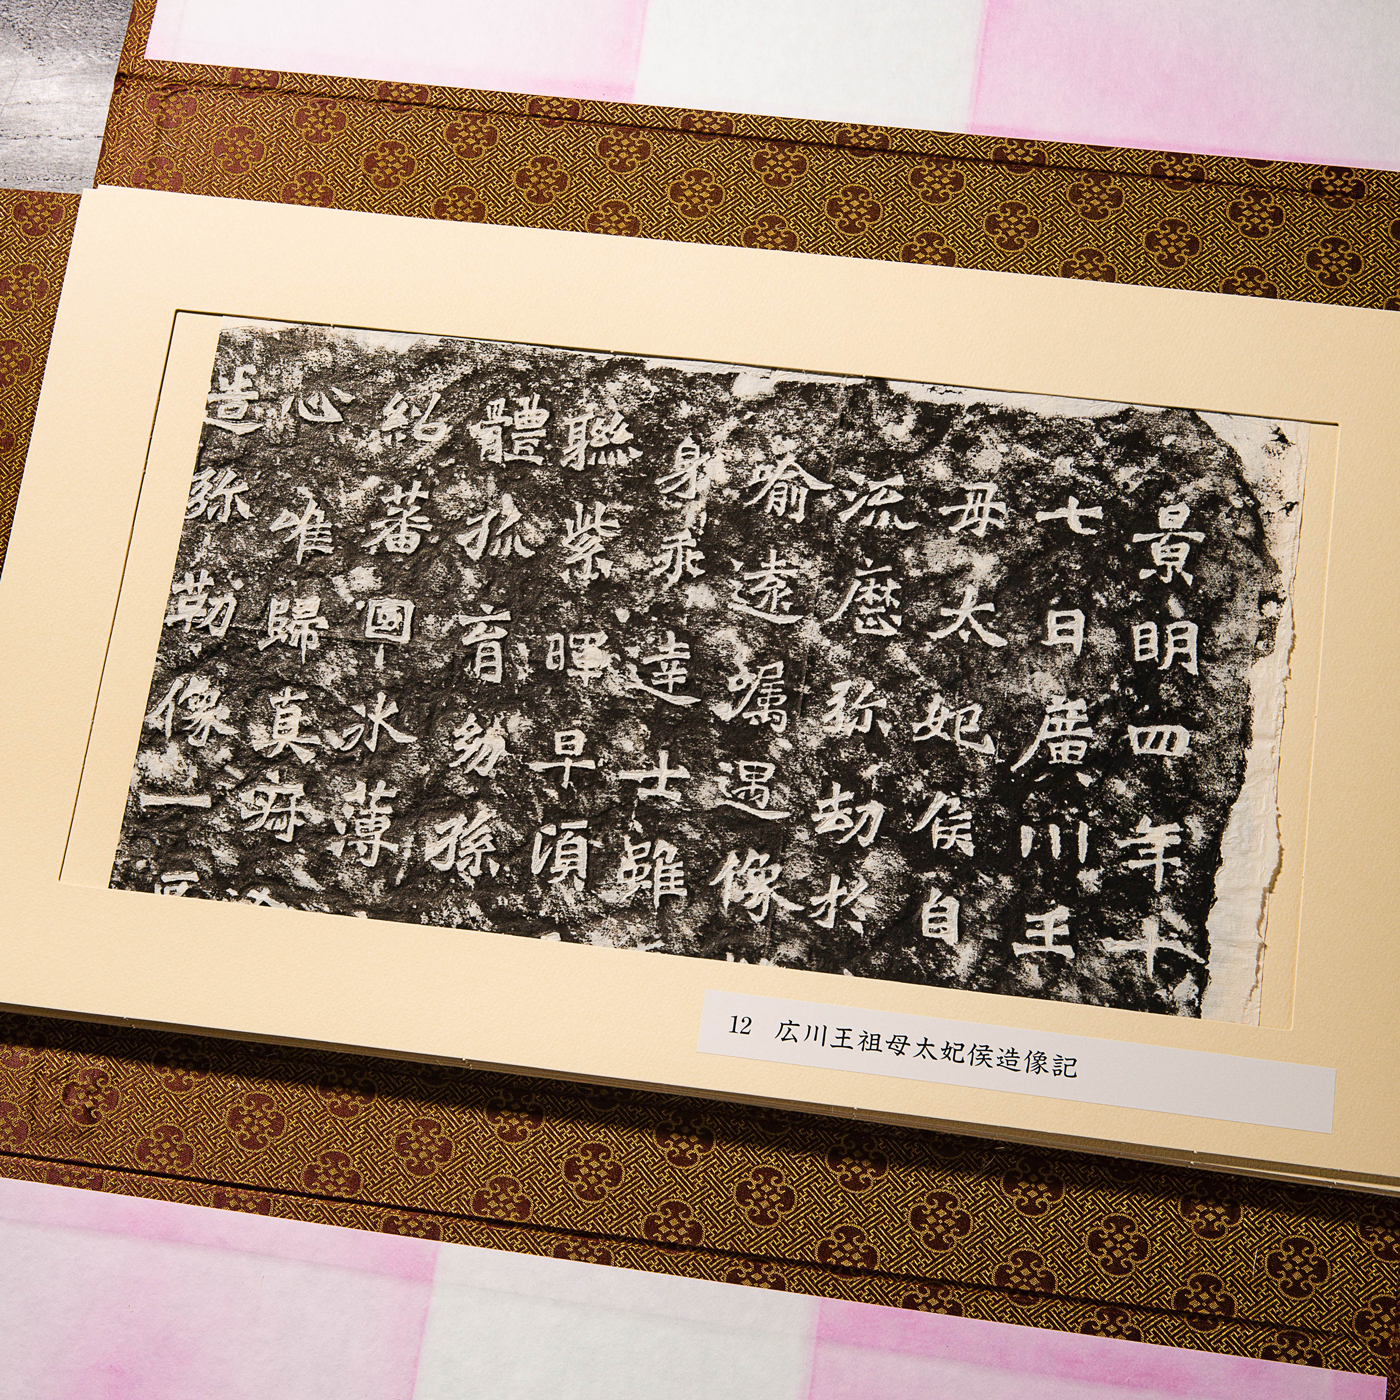 景明四年十
七日廣川王
母太妃侯自
流歷弥劫於
喻遠囑遇像
身乖達士雖
聯紫暉早湏
體孤育幼孫
紹蕃國氷薄
心唯歸真寂
造弥勒像一
12 広川王祖母太妃侯造像記